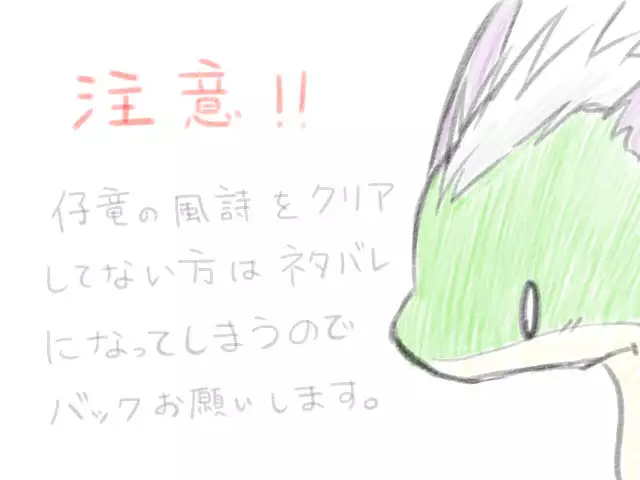 注意!!
仔竜の風詩をクリア
してない方はネタバレ
になってしまうので
バックお願いします。